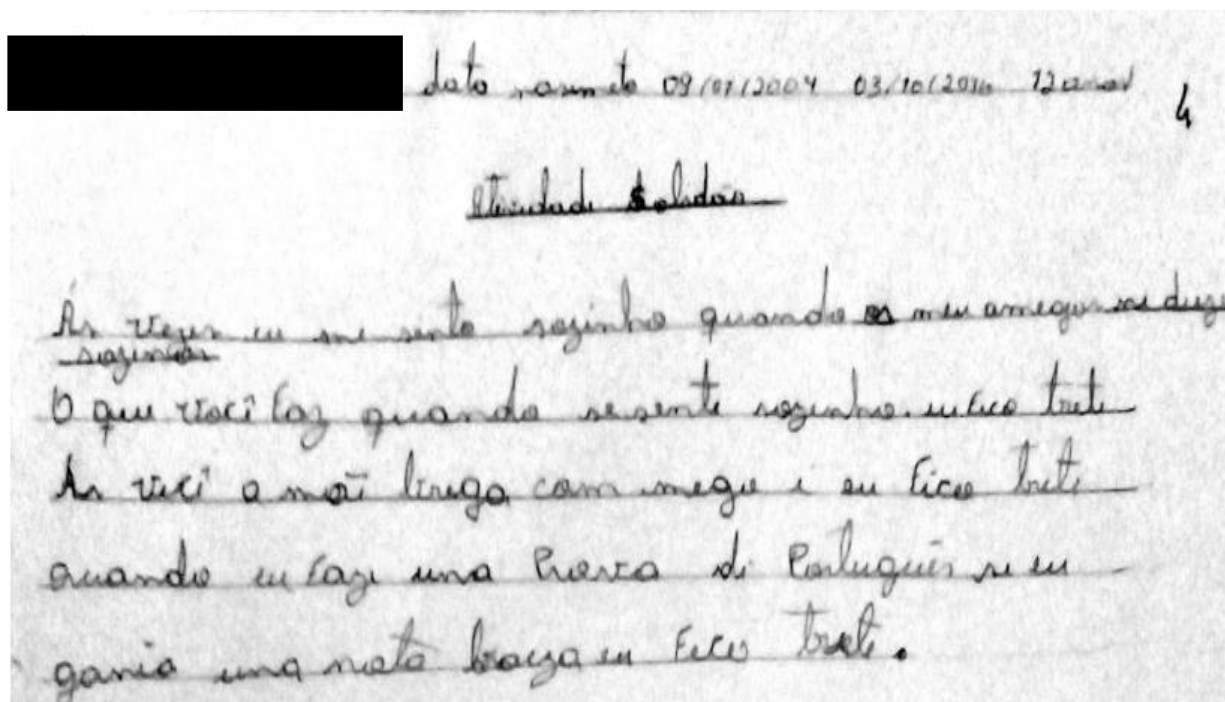 data nasimeto 09/01/2004 03/10/2016 12 anos
4
Atividade Solidão
Ás vezes eu me sento sozinho quando os meu amegos me duze
sozinhos
O que você faz quando sesente sozinho. eu fico trete
As vecê a mãe briga com mego i eu fico trete
quando eu faze uma Prova di Português se eu
ganio uma nota baiza eu fico trete.